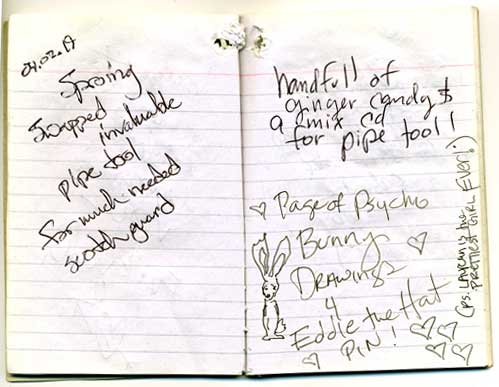 04.02.17
Sproing
Swapped
invaluable
pipe tool
for much needed
scotch guard
handfull of
ginger candy &
a mix cd
for pipe tool!
Page of Psycho
Bunny
Drawings
4
Eddie the Hat
Pin!
(P.S. Lauren is the
prettiest girl ever! :)